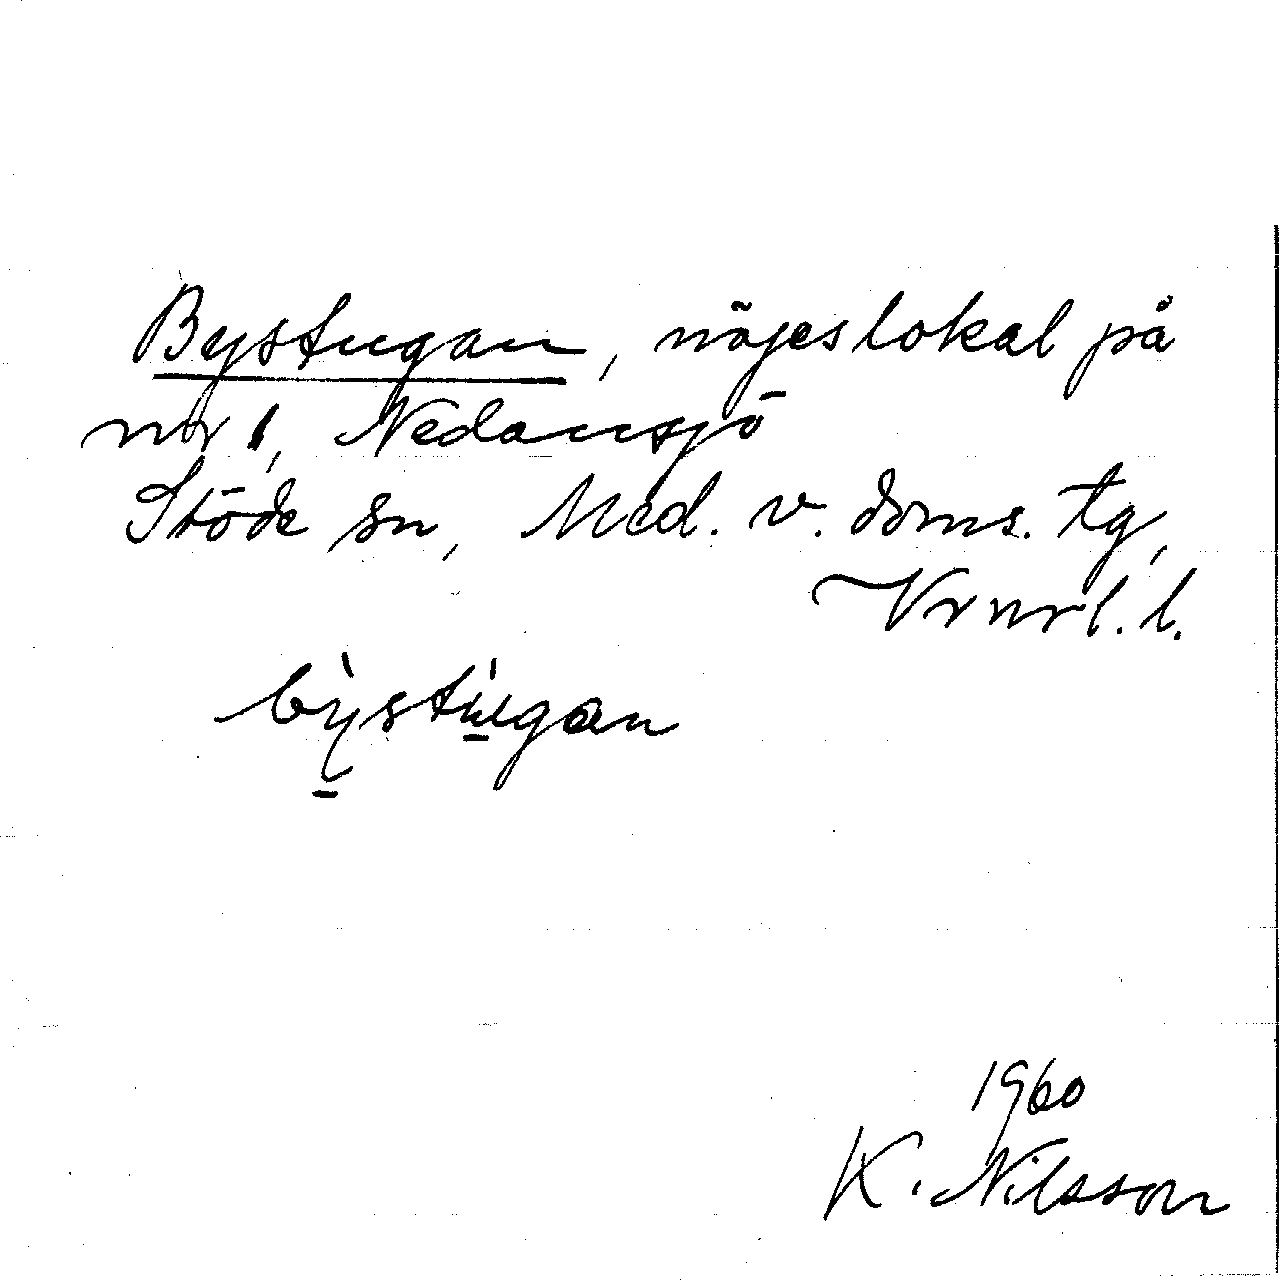 Bystugan, nöjeslokal på
nr 1, Nedansjö
Stöde sn, Med. v. doms. tg,
Vrnrl. l.
bỳstùgan
1960
K. Nilsson